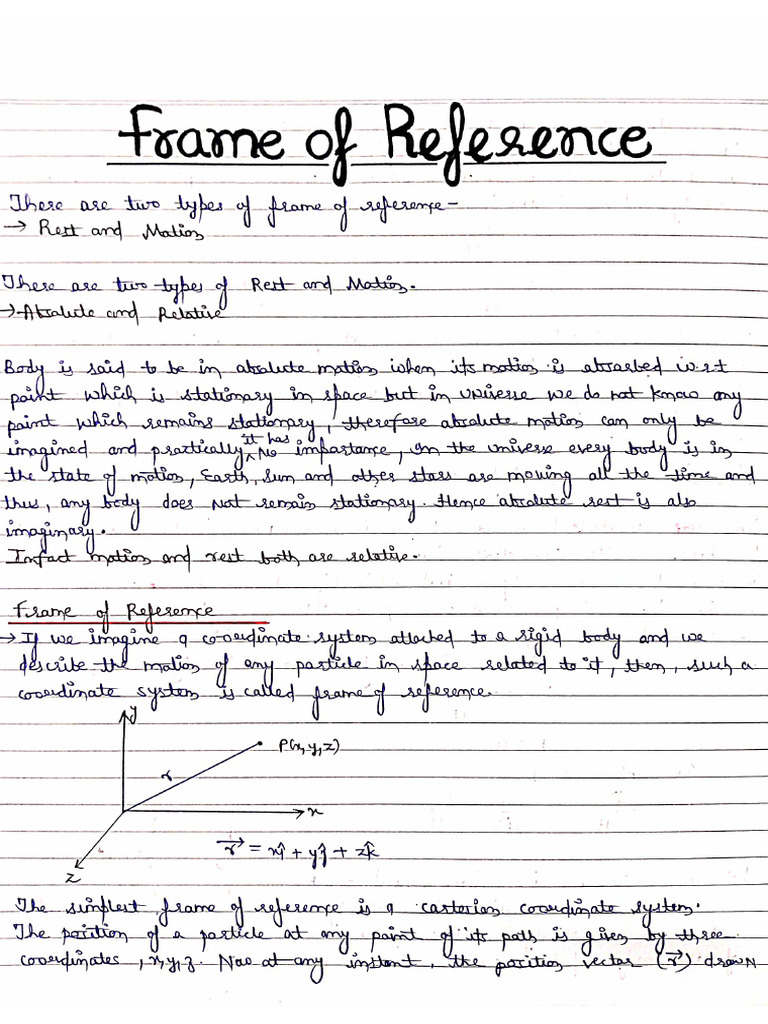 Frame of Reference
There are two types of frame of reference-
→ Rest and Motion
There are two types of Rest and Motion.
→ Absolute and Relative
Body is said to be in absolute motion when its motion is absorbed w.r.t
point which is stationary in space but in universe we do not know any
point which remains stationary, therefore absolute motion can only be
imagined and practically it has No importance, In the universe every body is in
the state of motion, Earth, Sun and other stars are moving all the time and
thus, any body does not remain stationary. Hence absolute rest is also
imaginary.
Infact motion and rest both are relative.
Frame of Reference
→ If we imagine a co-ordinate system attached to a rigid body and we
describe the motion of any particle in space related to it, then, such a
coordinate system is called frame of reference.
y
P(x,y,z)
r
x
r⃗ = xî + yĵ + zk̂
z
The simplest frame of reference is a cartesian coordinate system.
The position of a particle at any point of its path is given by three
coordinates, x,y,z. Now at any instant, the position vector (r⃗) drawn